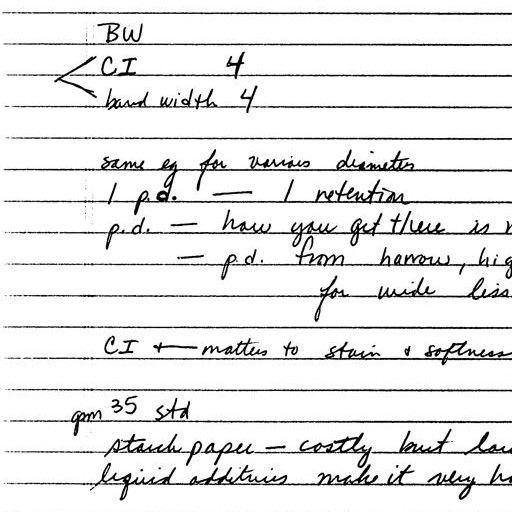 BW
CI 4
band width 4
same eq for various diameter
1 p.d. — 1 retention
p.d. — how you get there is
— p.d. from narrow, hig
for wide less
CI ← matters to stain & softness
gm 35 std
starch paper — costly but low
liquid additives make it very ha